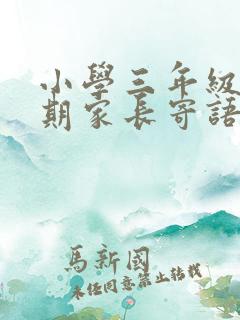 小學三年級
期家長寄語
馬新國
未任同意禁止轉載